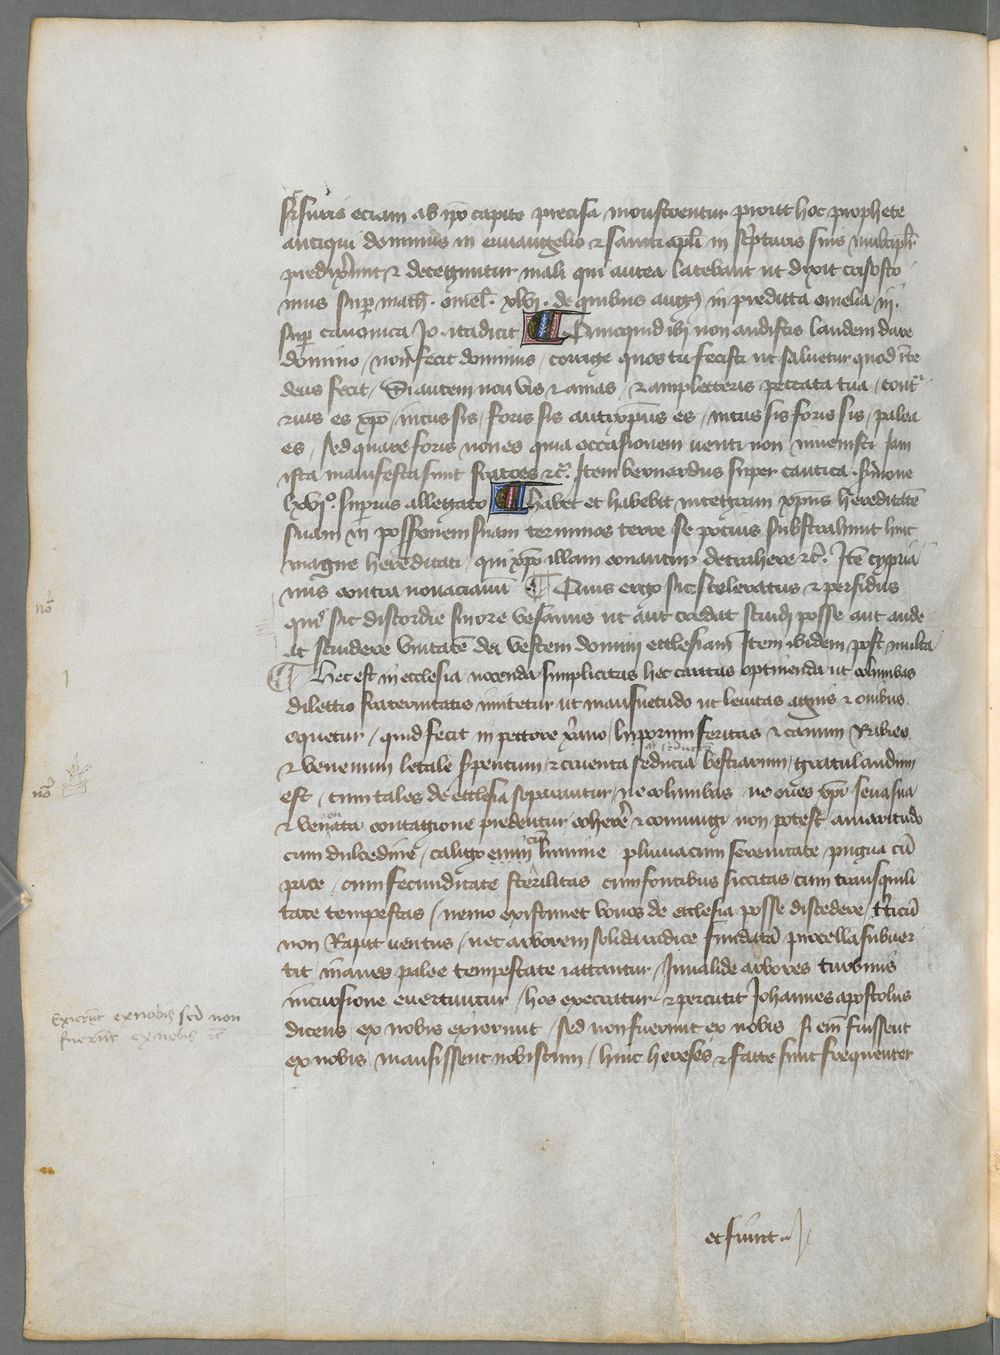 scissuris eciam ab ipo capite precisa monstrentur prout hoc prophete
antiqui dominus in euuangelio ⁊ sancti apli in scripturis suis multiplr
predixerunt ⁊ deteguntur mali qui antea latebant ut dixit crisosto
mus sup math. omel. xlvi. de quibus aug9 in predicta omelia iii.
sup canonica Jo. ita dicit ¶ Quicquid ibi non audistis laudem dare
domino / non fecit dominus / corrige quos tu fecisti ut saluetur quod in te
deus fecit / Si autem non vis ⁊ amas / ⁊ amplecteris peccata tua / contra
rius es xpo / intus sis / foris sis antixpus es / intus sis foris sis / palea
es / sed quare foris non es quia occasionem uenti non inuenisti Jam
ista manifesta sunt fratres ⁊c. Item bernardus super cantica. sermone
lxvi°. supius allegato ¶ habet et habebit integram xpus hereditatem
suam in possessionem suam terminos terre se pocius substrahunt huic
magne hereditati / qui xpo illam conantur detrahere ⁊c. Ite cypria
nus contra nouacianum ¶ Quis ergo sic sceleratus ⁊ perfidus
quis sic discordie furore vesanus ut aut credat scindi posse aut aude
at scindere vnitate dei vestem domini ecclesiam Item ibidem post multa
¶ Hec est in ecclesia noscenda simplicitas hec caritas optinenda ut columbas
dilectio fraternitatis imitetur ut mansuetudo ut lenitas agnis ⁊ ouibus
equetur / quid fecit in pectore xpiano / luporum feritas ⁊ canum Rabies
⁊ venenum letale serpentum / ⁊ cruenta seuicia bestiarum / gratulandum
est / cum tales de ecclesia separantur / ne columbas ne oues xpi seua sua
⁊ venenata contagione predentur coherere ⁊ coniungi non potest amaritudo
cum dulcedine / caligo cum lumine pluuia cum serenitate / pugna cu
pace / cum fecunditate sterilitas cum fontibus siccitas / cum tranquilli
tate tempestas / nemo existimet bonos de ecclesia posse discedere / triticu
non Rapit uentus / nec arborem solida radice fundata procella subuer
tit inanes palee tempestate iactantur / Inualide arbores turbinis
incursione euertuntur / hos execratur ⁊ percutit Johannes apostolus
dicens / ex nobis exierunt / sed non fuerunt ex nobis si em fuissent
ex nobis mansissent nobiscum / hinc hereses ⁊ facte sunt frequenter
et fiunt
no
no
Exierut ex nobis sed non
fuerut ex nobis ⁊c